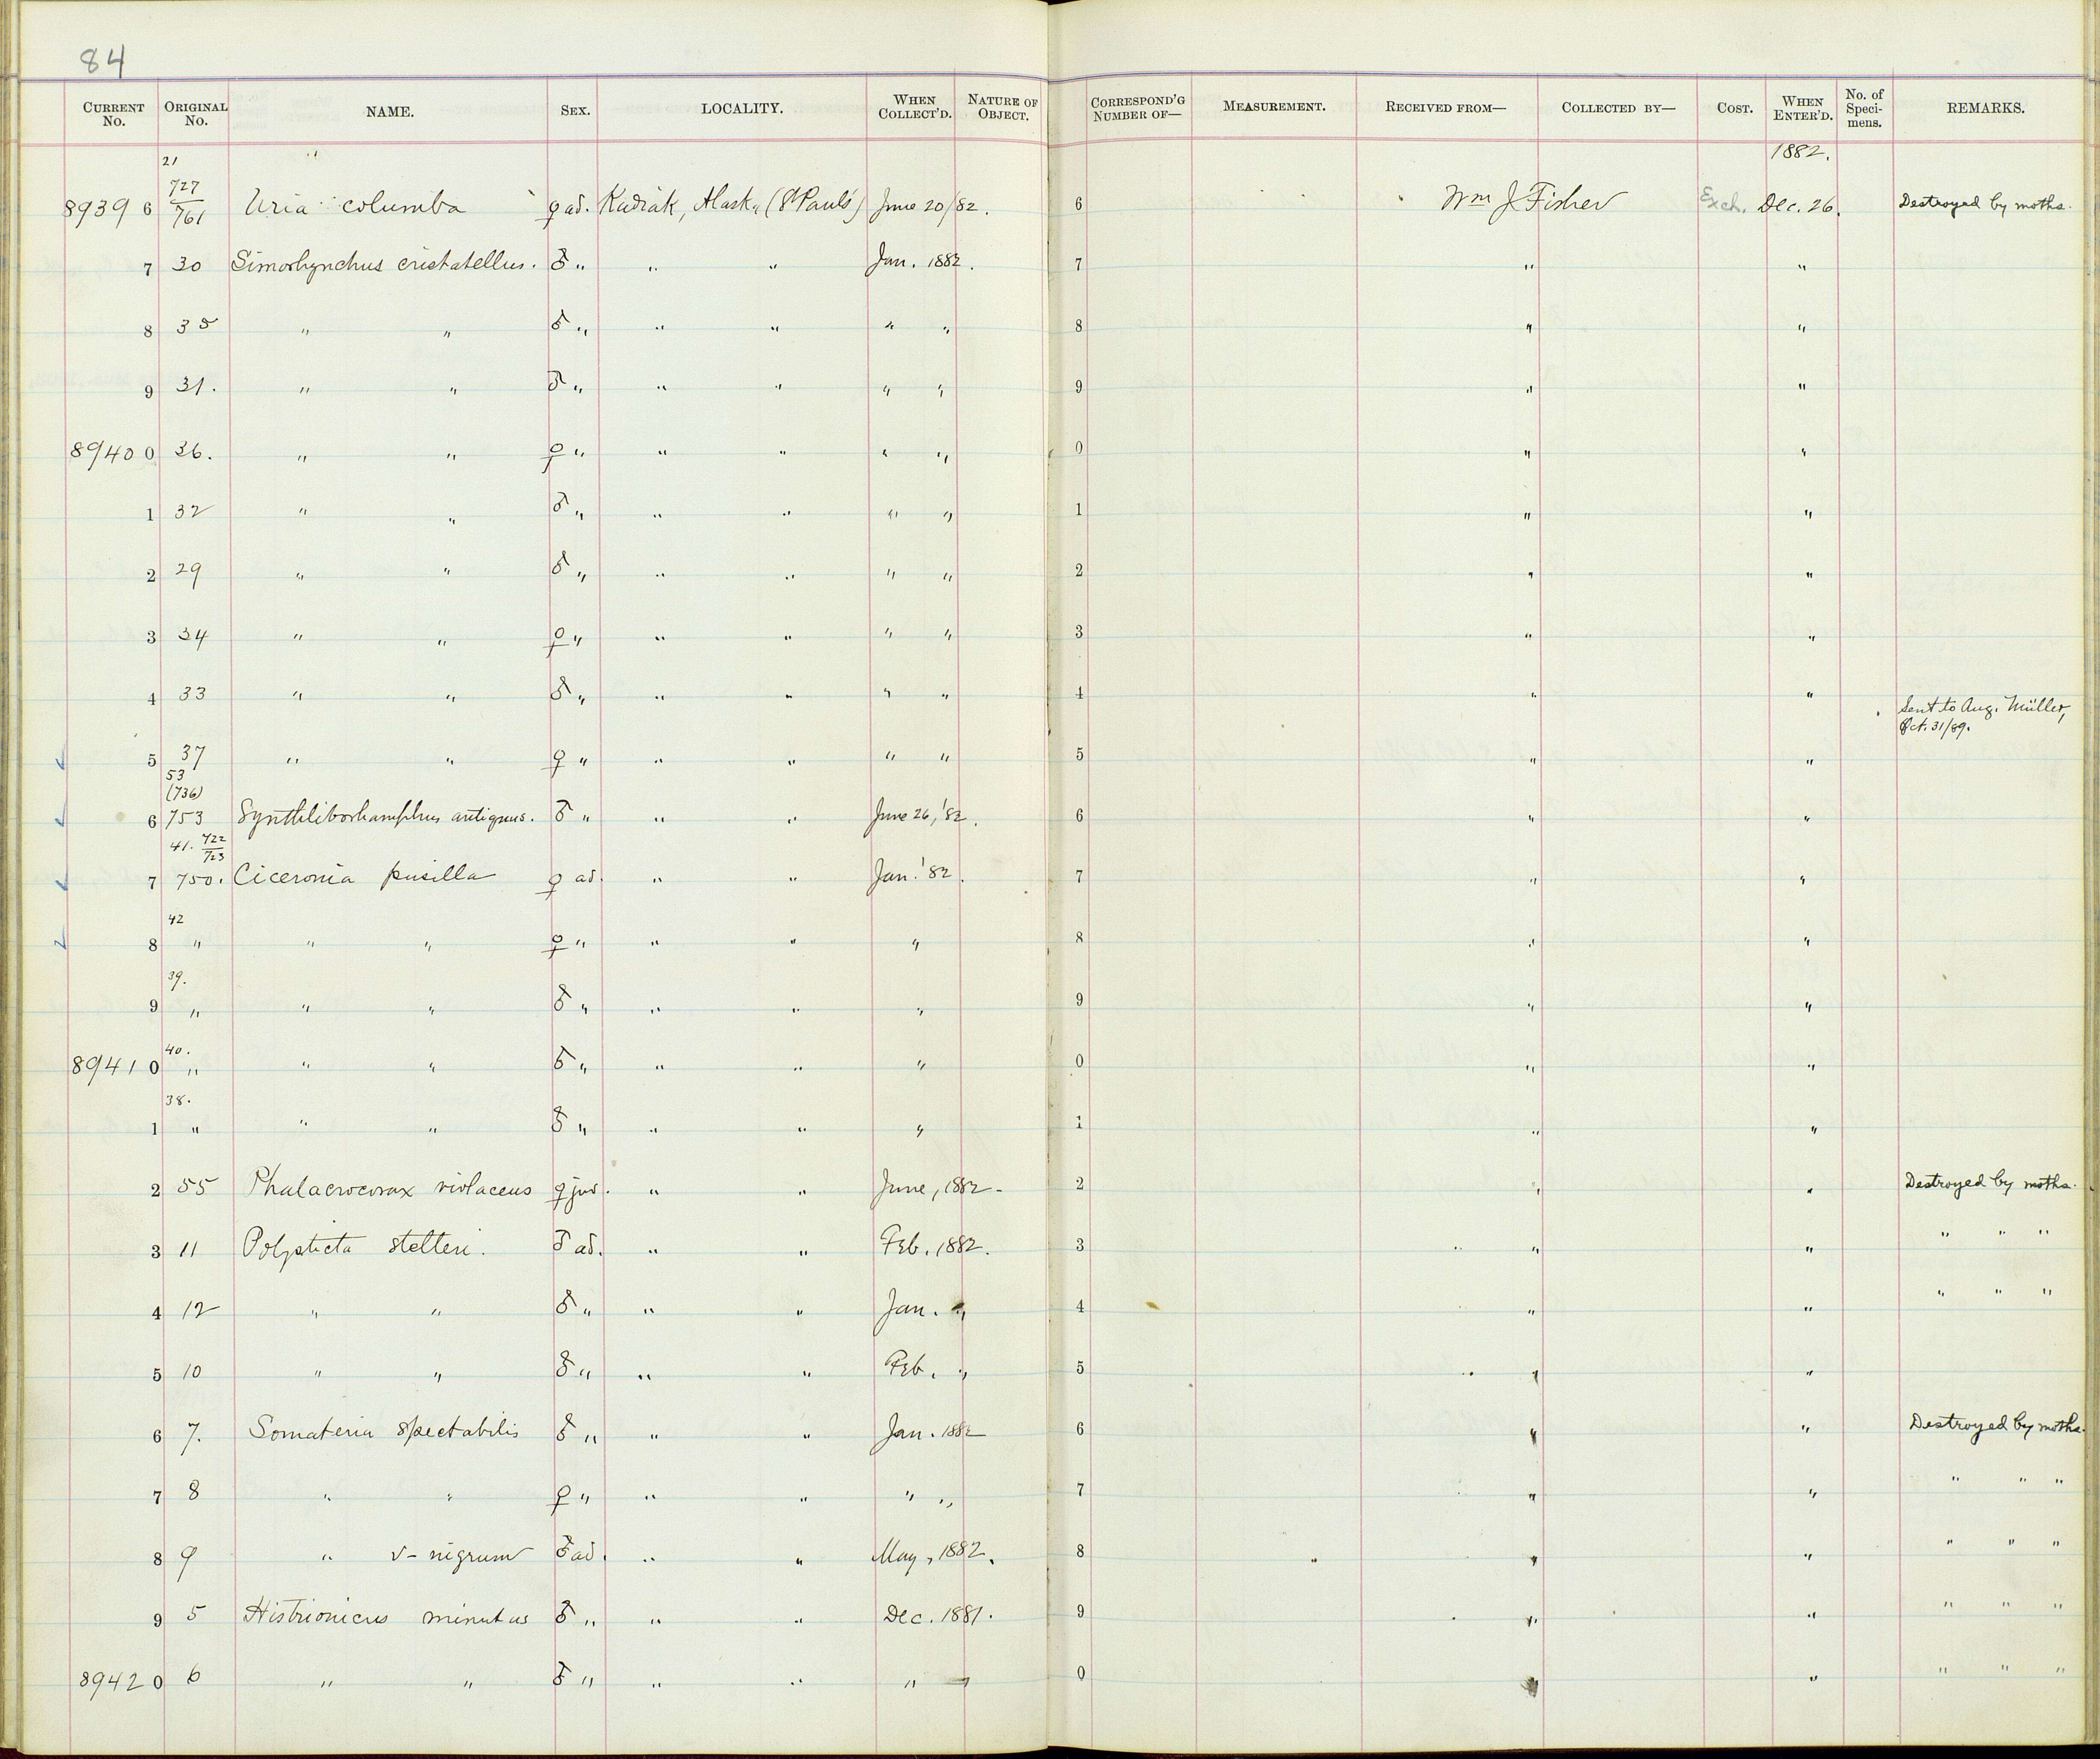 84
CURRENT No. ORIGINAL No. NAME. SEX. LOCALITY. WHEN COLLECT'D. NATURE OF OBJECT. CORRESPOND'G NUMBER OF— MEASUREMENT. RECEIVED FROM— COLLECTED BY— COST. WHEN ENTER'D. No. of Specimens. REMARKS.
21 1882.
727
8939 6 761 Uria columba ♀ ad. Kadiak, Alaska (St Paul's) June 20/82. 6 Wm J Fisher Exch. Dec. 26. Destroyed by moths.
7 30 Simorhynchus cristatellus. ♂ " " " Jan. 1882. 7 " "
8 35 " " ♂ " " " " " 8 " "
9 31. " " ♂ " " " " " 9 " "
8940 0 36. " " ♀ " " " " " 0 " "
1 32 " " ♂ " " " " " 1 " "
2 29 " " ♂ " " " " " 2 " "
3 34 " " ♀ " " " " " 3 " "
4 33 " " ♂ " " " " " 4 " "
Sent to Aug. Müller,
Oct. 31/89.
5 37 " " ♀ " " " " " 5 " "
53
(736)
6 753 Synthliborhamphus antiquus. ♂ " " " June 26, '82. 6 " "
41. 722
723
7 750. Ciceronia pusilla ♀ ad. " " Jan. '82. 7 " "
42
8 " " " ♀ " " " " 8 " "
39.
9 " " " ♂ " " " " 9 " "
40.
8941 0 " " " ♂ " " " " 0 " "
38.
1 " " " ♂ " " " " 1 " "
2 55 Phalacrocorax violaceus ♀ juv. " " June, 1882- 2 " " Destroyed by moths.
3 11 Polysticta stelleri. ♂ ad. " " Feb. 1882. 3 " " " " "
4 12 " " ♂ " " " Jan. " 4 " " " " "
5 10 " " ♂ " " " Feb. " 5 " "
6 7. Somateria spectabilis ♂ " " " Jan. 1882 6 " " Destroyed by moths.
7 8 " " ♀ " " " " " 7 " " " " "
8 9 " v-nigrum ♂ ad. " " May, 1882. 8 " " " " "
9 5 Histrionicus minutus ♂ " " " Dec. 1881. 9 " " " " "
8942 0 6 " " ♂ " " " " " 0 " " " " "